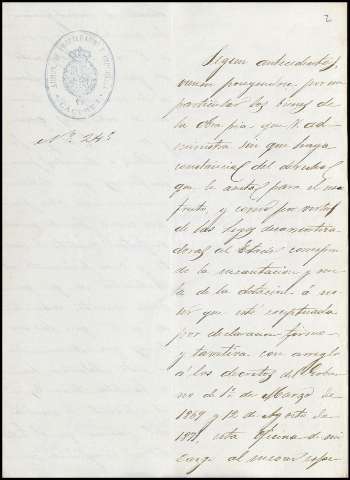 2
ADMON. DE PROPIEDADES Y
CACERES
Nº. 24.
Segun antecedentes,
vienen poseyendose por un
particular los bienes de
la Obra pia que V. ad-
ministra sin que haya
constancia del derecho
que le asista para el us-
fruto, y como por virtud
de las leyes desamortiza-
doras al Estado correspon-
de la incautacion y ven-
ta de la dotacion á no
ser que esté exceptuada
por declaracion firme
y taxativa con arreglo
á los decretos del Gobier-
no de 1º. de Marzo de
1869 y 12 de Agosto de
1871, esta Oficina de mi
cargo al incoar espe-